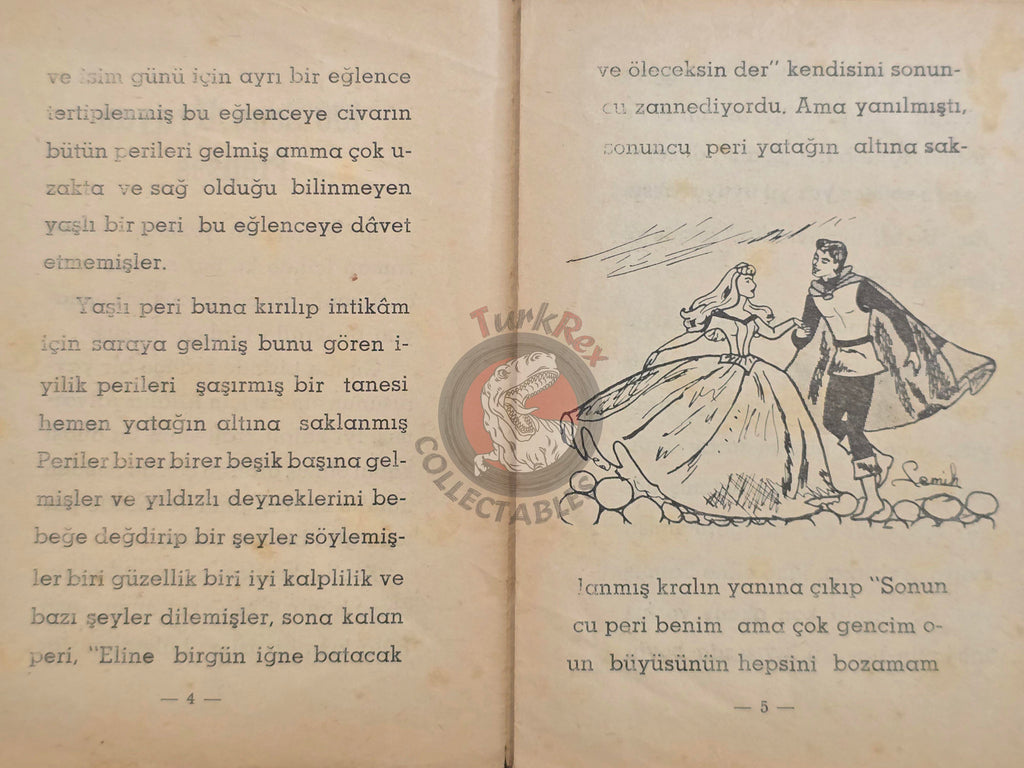 ve isim günü için ayrı bir eğlence
tertiplenmiş bu eğlenceye civarın
bütün perileri gelmiş amma çok u-
zakta ve sağ olduğu bilinmeyen
yaşlı bir peri bu eğlenceye dâvet
etmemişler.
Yaşlı peri buna kırılıp intikâm
için saraya gelmiş bunu gören i-
yilik perileri şaşırmış bir tanesi
hemen yatağın altına saklanmış
Periler birer birer beşik başına gel-
mişler ve yıldızlı deyneklerini be-
beğe değdirip bir şeyler söylemiş-
ler biri güzellik biri iyi kalplilik ve
bazı şeyler dilemişler, sona kalan
peri, "Eline birgün iğne batacak
— 4 —
ve öleceksin der" kendisini sonun-
cu zannediyordu. Ama yanılmıştı,
sonuncu peri yatağın altına sak-
Semih
lanmış kralın yanına çıkıp "Sonun
cu peri benim ama çok gencim o-
un büyüsünün hepsini bozamam
— 5 —
TurkRex
COLLECTABLES